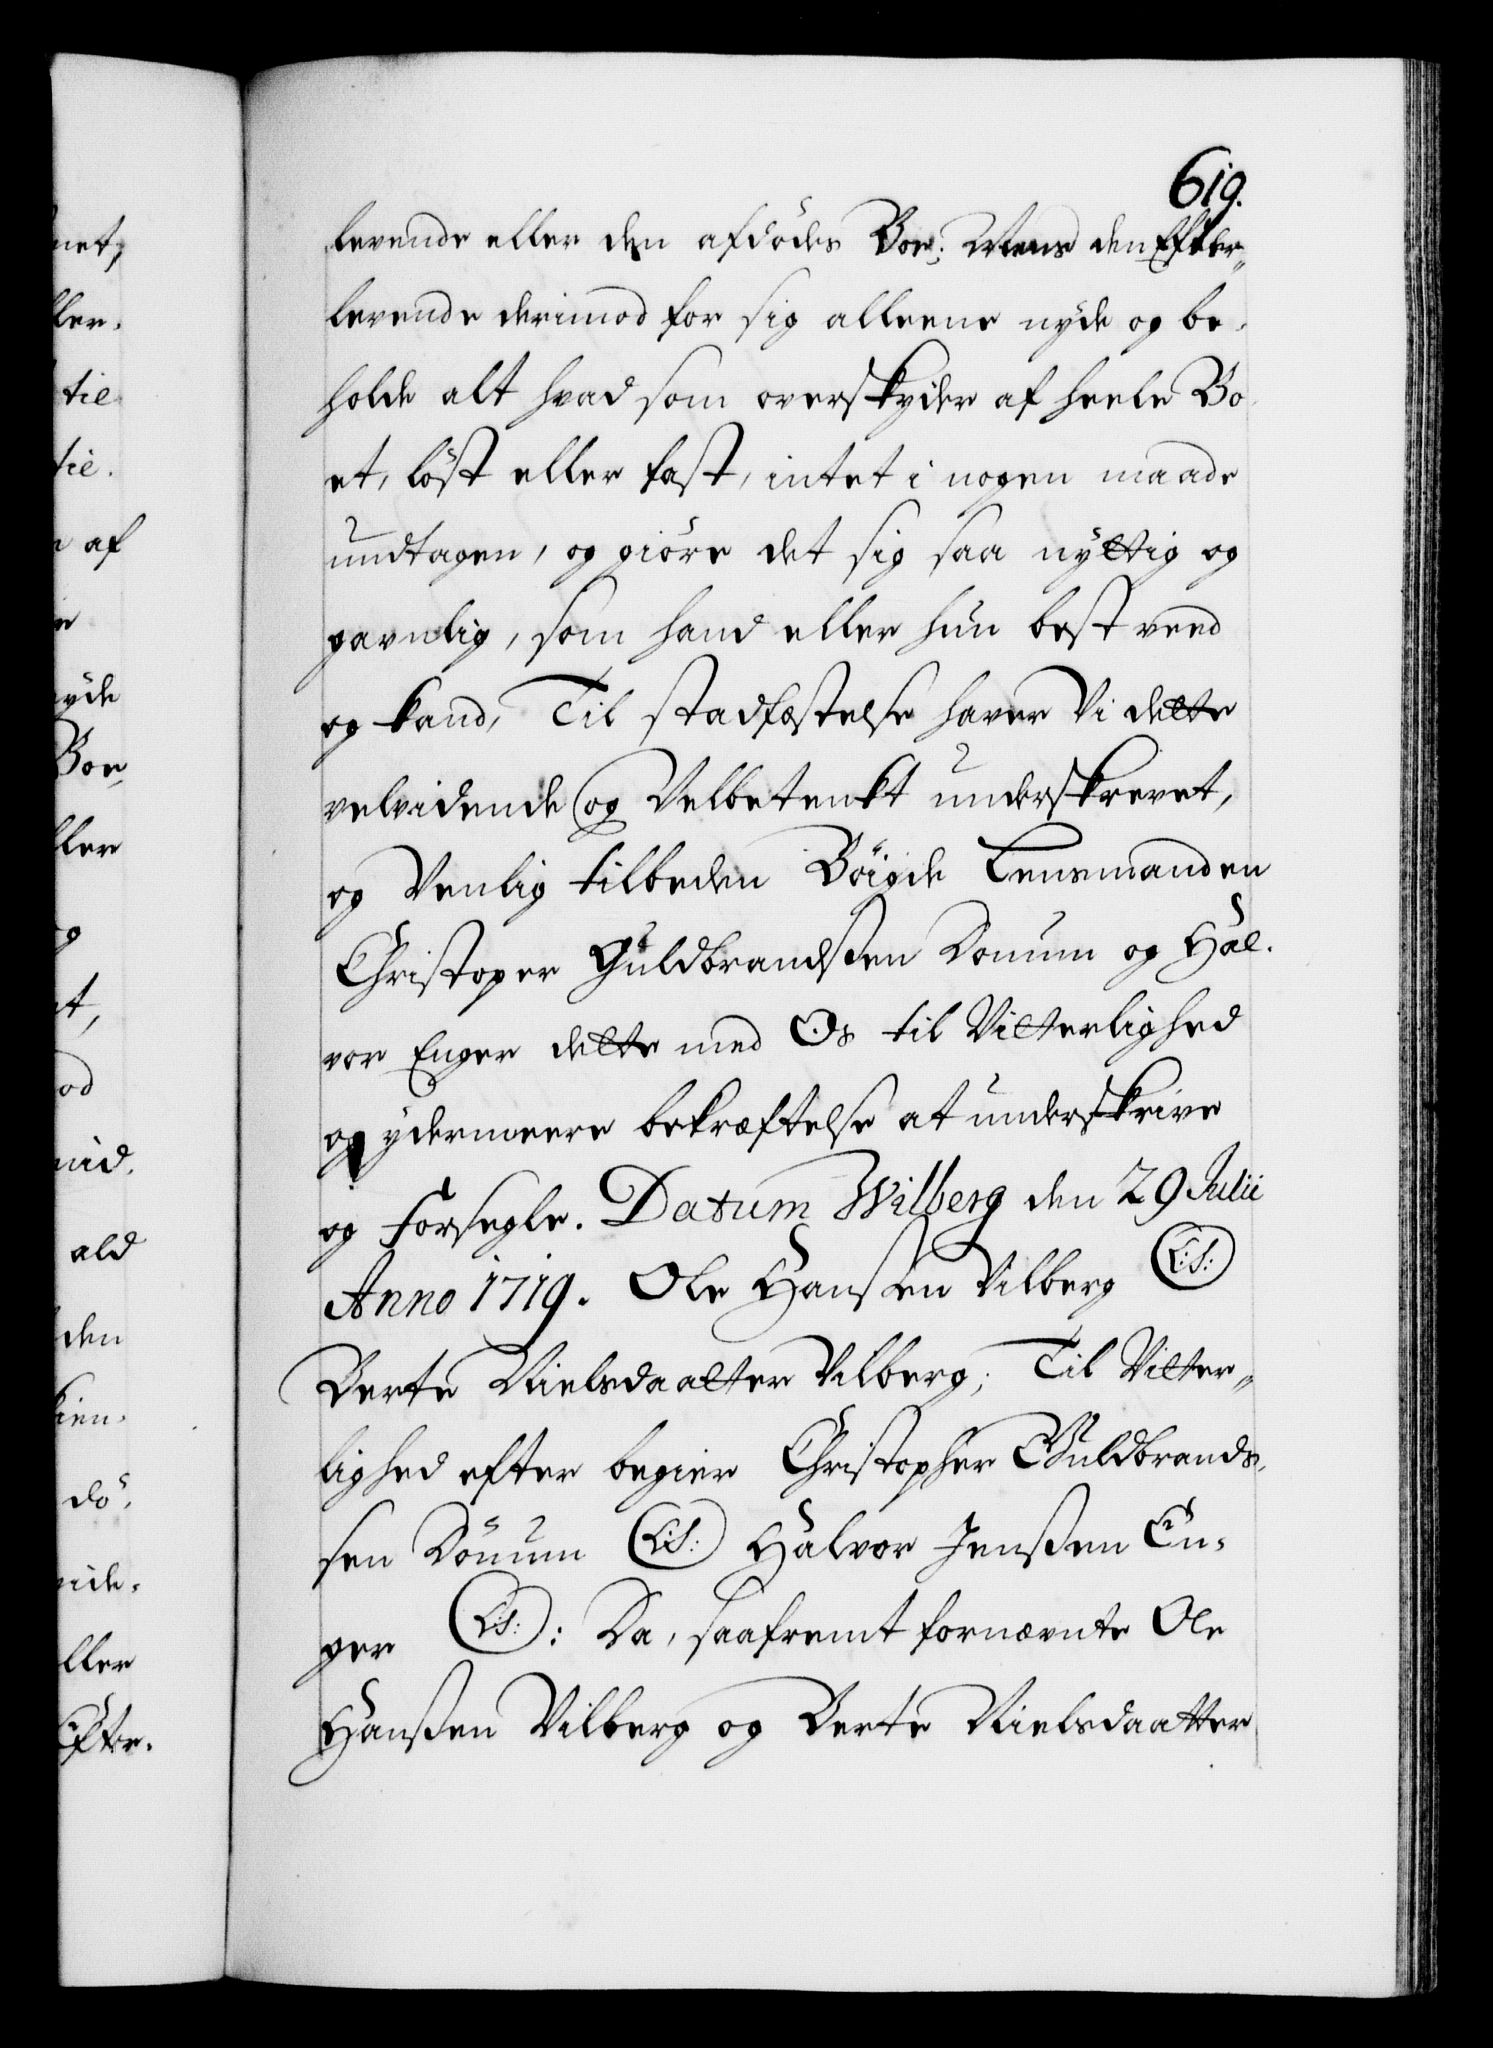 619.
levende eller den afdødes Boe; Mens den Efter„
levende derimod for sig alleene nyde og be-
holde alt hvad som overskyder af heele Bo-
et, löst eller fast, intet i nogen maade
undtagen, og giöre det sig saa nyttig og
gavnlig, som hand eller hun best veed
og kand, Til stadfæstelse haver Vi dette
velvidende og Velbetenkt underskrevet,
og Venlig tilbeden Böigde Lensmanden
Christoper Guldbrandssen Donum og Hal-
vor Enger dette med Os til Vitterlighed
og ydermeere bekræftelse at underskrive
og forsegle. Datum Wilberg den 29 Julii
Anno 1719. Ole Hanssen Vilberg L:S:
Berte Nielsdaatter Vilberg; Til Vitter„
lighed efter begier Christopher Guldbrands-
sen Dönum L:S: Halvor Jenssen En-
ger L:S:: Da, saafremt fornævnte Ole
Hanssen Vilberg og Berte Nielsdaatter
net,
ller-
til
til-
af
nyde
Boe
ller
og
et,
od
mid-
ald
den
kien-
dö-
vide-
ller
Efter-